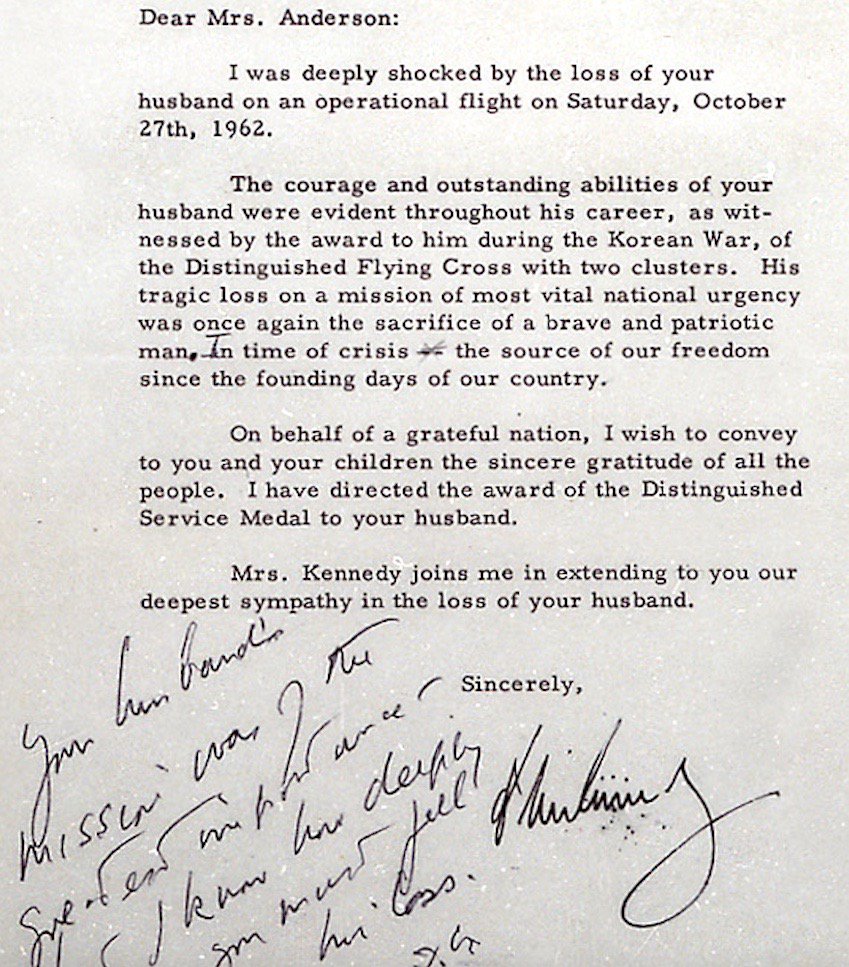 Dear Mrs. Anderson:
I was deeply shocked by the loss of your
husband on an operational flight on Saturday, October
27th, 1962.
The courage and outstanding abilities of your
husband were evident throughout his career, as wit-
nessed by the award to him during the Korean War, of
the Distinguished Flying Cross with two clusters. His
tragic loss on a mission of most vital national urgency
was once again the sacrifice of a brave and patriotic
man. In time of crisis the source of our freedom
since the founding days of our country.
On behalf of a grateful nation, I wish to convey
to you and your children the sincere gratitude of all the
people. I have directed the award of the Distinguished
Service Medal to your husband.
Mrs. Kennedy joins me in extending to you our
deepest sympathy in the loss of your husband.
Sincerely,
Your husband's
mission was of the
greatest importance
I know how deeply
you must feel
his loss.